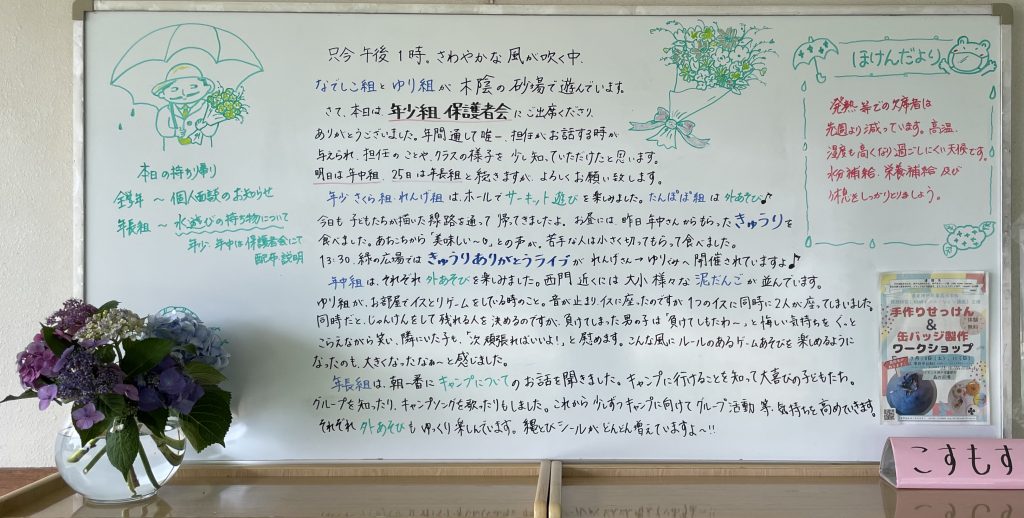 本日の持ち帰り
全学年 ～ 個人面談のお知らせ
年長組 ～ 水遊びの持ち物について
年少、年中は保護者会にて
配布説明
只今 午後1時。さわやかな風が吹く中、
なでしこ組とゆり組が 木陰の砂場で遊んでいます。
さて、本日は 年少組 保護者会 にご出席くださり
ありがとうございました。年間通して唯一、担任がお話する時が
与えられ、担任のことや、クラスの様子を少し知っていただけたと思います。
明日は年中組、25日は年長組と続きますが、よろしくお願い致します。
年少さくら組・れんげ組は、ホールでサーキット遊びを楽しみました。たんぽぽ組は外あそび♪
今日も子どもたちが描いた線路を通って帰ってきましたよ。お昼には、昨日年中さんからもらったきゅうりを
食べました。あちこちから「美味しい～。」との声が。苦手な人は小さく切ってもらって食べました。
13:30、緑の広場では きゅうりありがとうライブが れんげ→ゆりぐみへ開催されていますよ♪
年中組は、それぞれ外あそびを楽しみました。西門近くには大小様々な泥だんごが並んでいます。
ゆり組が、お部屋でイスとりゲームをしている時のこと。音が止まりイスに座ったのですが、1つのイスに同時に2人が座ってしまいました。
同時だと、じゃんけんをして残れる人を決めるのですが、負けてしまった男の子は「負けてしもたわ～。」と悔しい気持ちをぐっと
こらえながら笑い、隣にいた子も、「次頑張ればいいよ!」と慰めます。こんな風にルールのあるゲームあそびを楽しめるように
なったのも、大きくなったなぁ～と感じました。
年長組は、朝一番にキャンプについてのお話を聞きました。キャンプに行けることを知って大喜びの子どもたち。
グループを知ったり、キャンプソングを歌ったりもしました。これから少しずつキャンプに向けてグループ活動等、気持ちを高めていきます。
それぞれ外あそびもゆっくり楽しんでいます。縄とびシールがどんどん増えていますよ～!!
ほけんだより
発熱等での欠席者は
先週より減っています。高温、
湿度も高くなり過ごしにくい天候です。
水分補給、栄養補給及び
休息をしっかりとりましょう。
手作りせっけん
&
缶バッジ製作
ワークショップ
こすもす